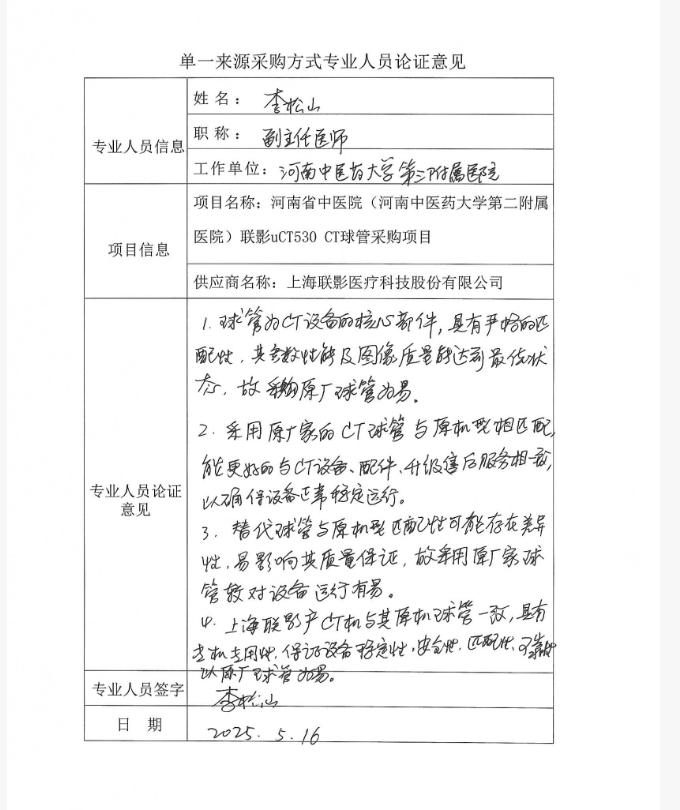 单一来源采购方式专业人员论证意见
专业人员信息
姓 名： 李松山
职 称： 副主任医师
工作单位：河南中医药大学第三附属医院
项目信息
项目名称：河南省中医院（河南中医药大学第二附属
医院）联影uCT530 CT球管采购项目
供应商名称：上海联影医疗科技股份有限公司
专业人员论证
意见
1. 球管为CT设备的核心部件，具有严格的匹
配性，其参数性能及图像质量能达到最佳状
态，故采购原厂球管为易。
2. 采用原厂家的CT球管与原机型相匹配,
能更好的与CT设备、配件、升级售后服务相一致,
以确保设备正常稳定运行。
3. 替代球管与原机型匹配性可能存在差异
性，易影响其质量保证，故采用原厂家球
管较对设备运行有易。
4. 上海联影产CT机与其原机球管一致，具有
专机专用性，保证设备稳定性，安全性，匹配性、可靠性
以原厂球管为易。
专业人员签字
李松山
日 期
2025. 5. 16